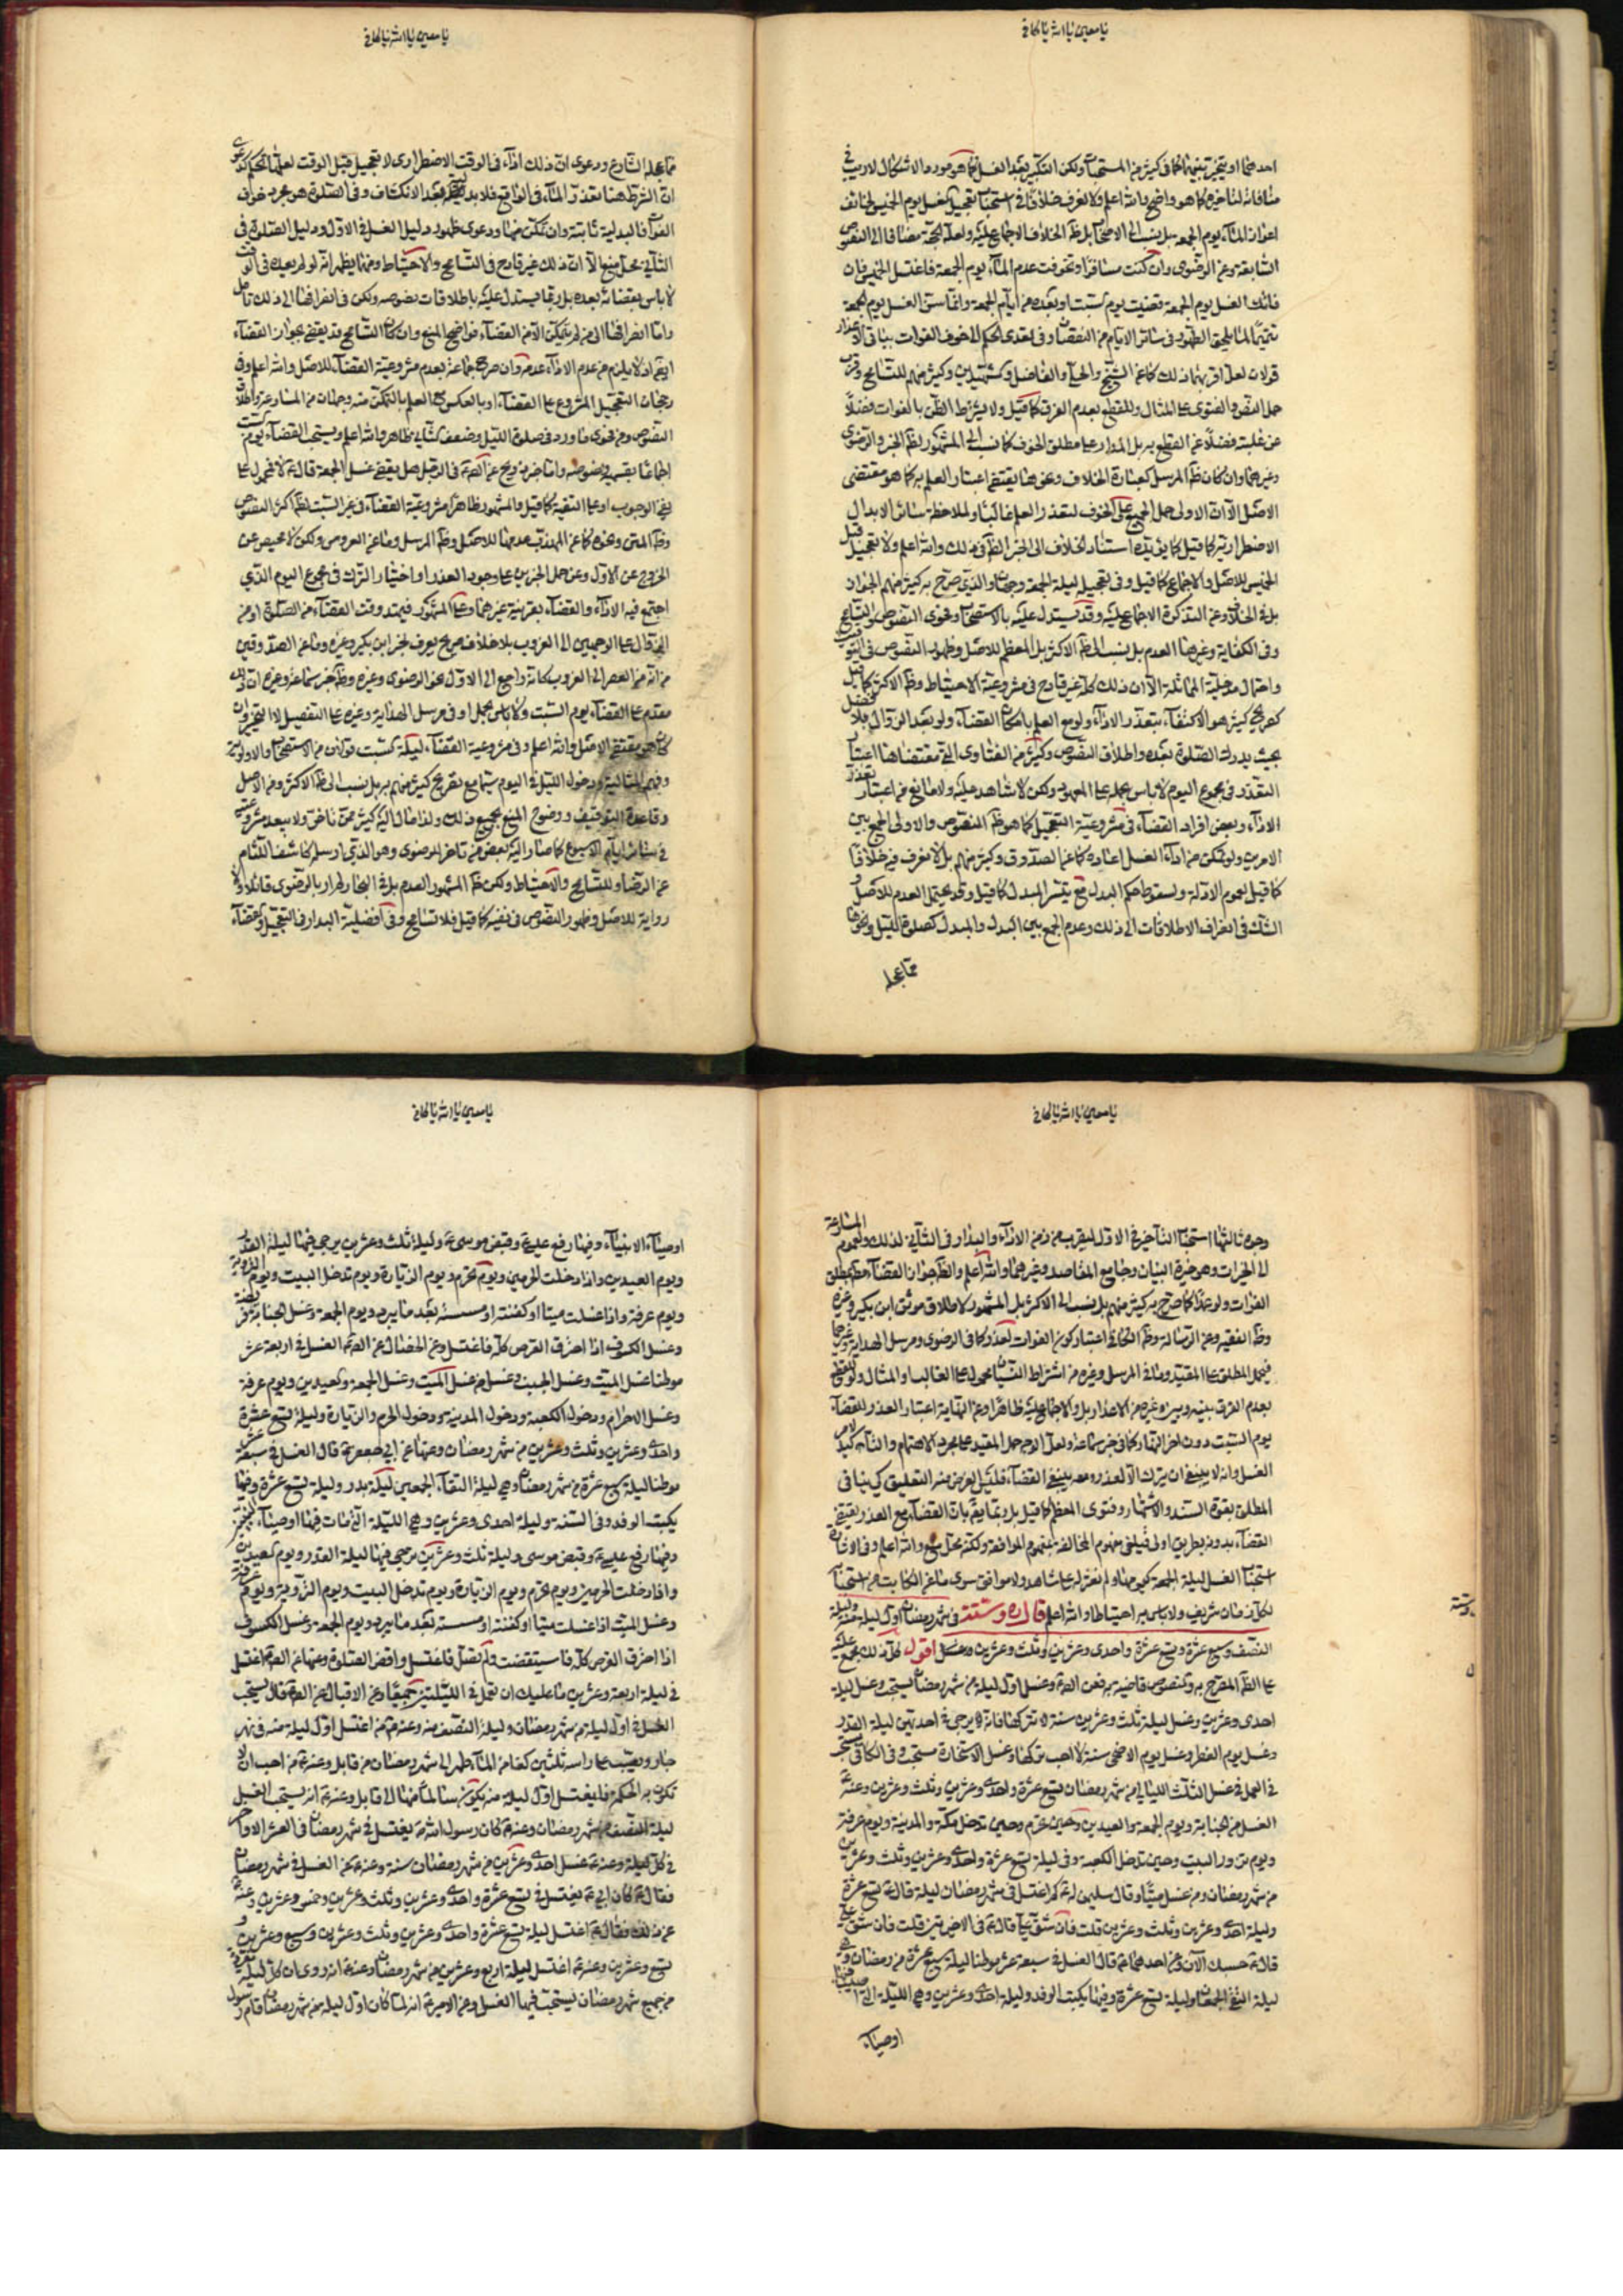 يا معين يا الله يا كافي
احدهما او يتخير بينهما كما في كثير من المستحبات ولكن التكبير بعد الغسل كما هو مورد الاشكال لا ريب في
منافاته لتاخيره كما هو واضح والله اعلم ولا نعرف خلافا في استحباب تعجيل غسل يوم الجمعة يوم الخميس لخائف
اعواز الماء يوم الجمعة بل ينسب الى الاصحاب بل ظ الخلاف الاجماع عليه ولعله الحجة مضافا الى النصوص
السابقة وعن الرضوى وان كنت مسافرا وتخوفت عدم الماء يوم الجمعة فاغتسل الخميس فان
فاتك الغسل يوم الجمعة قضيت يوم السبت او بعده من ايام الجمعة وانما سن الغسل يوم الجمعة
تتميما لما يلحق الطهور في سائر الايام من النقصان وفي تعدى الحكم الى خوف الفوات بباقي الاعذار
قولان لعل اقربهما ذلك كما عن الشيخ والفاضل والشهيدين وكثير منهم للتسامح
حمل النص والفتوى على المثال وللقطع بعدم الفرق كما قيل ولا يشترط الظن بالفوات فضلا
عن غلبته فضلا عن القطع به بل المدار على مطلق الخوف كما نسب الى المشهور لظ الخبر والرضوى
وغيرهما وان كان ظ المرسل كعبارة الخلاف ونحوها يقتضى اعتبار العلم به كما هو مقتضى
الاصل الا ان الاولى حمل الجميع على الخوف لتعذر العلم غالبا ولملاحظة سائر الابدال
الاضطرارية كما قيل كما يؤيده استناد الخلاف الى الخبر الظ في ذلك والله اعلم ولا تعجيل قبل
الخميس للاصل والاجماع كما قيل وفي تعجيله ليلة الجمعة وجهان والذي صرح به كثير منهم الجواز
بل في الخلاف وعن التذكرة الاجماع عليه وقد يستدل عليه بالاستصحاب وفحوى النصوص والتسامح
وفي الكفاية وغيرها العدم بل ينسب الى ظ الاكثر بل المعظم للاصل وظهور النصوص في التوقيت
واحتمال مدخلية المماثلة الا ان ذلك كله غير قادح في مشروعية الاحتياط وظ الاكثر كما قيل
كصريح كثير هو الاكتفاء بتعذر الاداء ولو مع العلم بامكان القضاء ولو بعد الزوال بلا فصل
بحيث يدرك الصلوة بعده واطلاق النصوص وكثير من الفتاوى التي مقتضاها اعتبار
التعذر في مجموع اليوم لا باس بحمله على المعهود ولكن لا شاهد عليه ولا مانع من اعتبار تعذر
الاداء وبعض افراد القضاء في مشروعية التعجيل كما هو ظ النصوص والاولى الجمع بين
الامرين ولو تمكن من اداء الغسل اعاده كما عن الصدوق وكثير منهم بل لا نعرف فيه خلافا
كما قيل لعموم الادلة ولسقوط حكم البدل مع تيسر المبدل كما قيل وقد يحتمل العدم للاصل و
الشك في انصراف الاطلاقات الى ذلك وعدم الجمع بين البدل والمبدل كصلوة الليل ونحوها
مما عجله
يا معين يا الله يا كافي
مما عجله الشارع ودعوى ان ذلك اداء في الوقت الاضطرارى لا تعجيل قبل الوقت لعلها كدعوى
ان الشرط هنا تعذر الماء في الواقع فلا بدلية بعد الانكشاف وفي الصلوة هو مجرد خوف
الفوات فالبدلية ثابتة وان تمكن منها ودعوى ظهور دليل الغسل في الاول ودليل الصلوة في
الثاني محل منع الا ان ذلك غير قادح في التسامح والاحتياط ومنها يظهر انه لو لم يعده في الوقت
لا باس بقضائه بعده بل ربما يستدل عليه باطلاقات نصوصه ولكن في انصرافها الى ذلك تامل
واما انصرافها الى من لم يتمكن الا من القضاء فواضح المنع وان كان التسامح قد يقتضى بجواز القضاء
ايضا اذ لا يلزم من عدم الاداء عدمه وان صرح جماعة بعدم مشروعية القضاء للاصل والله اعلم وفي
رجحان التعجيل المشروع على القضاء او بالعكس مع العلم بالتمكن منه وجهان من المسارعة واطلاق
النصوص ومن فحوى ما ورد في صلوة الليل وضعف الثاني ظاهر والله اعلم ويستحب القضاء يوم السبت
اجماعا بقسميه ونصوصه واما خبر ذريح عن الصم في الرجل هل يقضى غسل الجمعة قال ع لا فمحمول على
نفى الوجوب او على التقية كما قيل والمشهور ظاهرا مشروعية القضاء في غير السبت لظ اكثر النصوص
وظ المتن ونحوه كما عن المهذب عدمها للاصل وظ المرسل وما عن العروس ولكن لا محيص عن
الخروج عن الاول وعن حمل الخبرين على وجود العذر او اختيار الترك في مجموع اليوم الذي
اجتمع فيه الاداء والقضاء بقرينة غيرهما وعلى المشهور فيمتد وقت القضاء من الصلوة او من
الزوال على الوجهين الى الغروب بلا خلاف صريح يعرف لخبر ابن بكير وغيره وما عن الصدوقين
من انه من العصر الى الغروب كانه راجع الى الاول نحو الرضوى وغيره وظ خبر سماعة وغيره ان
مقدم على القضاء يوم السبت ولا باس بحمل
كما هو مقتضى الاصل والله اعلم وفي مشروعية القضاء ليلة السبت قولان من الاستصحاب والاولوية
وفهم المثالية ودخول الليل في اليوم سيما مع تصريح كثير منهم به بل ينسب الى ظ الاكثر ومن الاصل
وقاعدة التوقيف ووضوح المنع بجميع ذلك ولذا مال اليه كثير ممن تاخر ولا يبعد مشروعيته
في سائر ايام الاسبوع كما صار اليه بعض من تاخر للرضوى وهو الذي ارسله كاشف اللثام
عن الرضا وللتسامح والاحتياط ولكن ظ المشهور العدم بل في البحار لم ار بالرضوى قائلا ولا
رواية للاصل وظهور النصوص في نفيه كما قيل فلا تسامح وفي افضلية البدار في التعجيل والقضاء
يا معين يا الله يا كافي
وجوه ثالثها استحباب التاخير في الاول ليقرب من زمن الاداء والبدار في الثاني لذلك ولعموم المسارعة
الى الخيرات وهو خيرة البيان وجامع المقاصد وغيرهما والله اعلم والظ جواز القضاء مع مطلق
الفوات ولو عمدا كما صرح به كثير منهم بل ينسب الى الاكثر بل المشهور لاطلاق موثق ابن بكير وغيره
وظ الفقيه وعن الرسالة وظ النكت اعتبار كون الفوات لعذر كما في الرضوى ومرسل الهداية وغيرهما
فيحمل المطلق على المقيد وما في المرسل وغيره من اشتراط النسيان محمول على الغالب او المثال وللقطع
بعدم الفرق بينه وبين غيره من الاعذار بل والاجماع عليه ظاهرا وعن النهاية اعتبار العذر للقضاء
يوم السبت دون اخر النهار كما في خبر سماعة ولعل الاوجه حمل المقيد على مجرد الاهتمام والتاكيد لامر
الغسل وانه لا ينبغي ان يترك الا لعذر ومعه ينبغي القضاء فليس الغرض منه التعليق كي ينافي
المطلق بقوة السند والاشتهار وفتوى المعظم كما قيل بل ربما يقال بان القضاء مع العذر يقتضى
القضاء بدونه بطريق اولى فيلغى مفهوم المخالفة بمفهوم الموافقة ولكنه محل منع والله اعلم وفي
استحباب الغسل ليلة الجمعة كيومها ولم نعثر له على شاهد ولا موافق سوى ما عن الكاتب من استحباب
لكل زمان شريف ولا باس به احتياطا والله اعلم قال ره وستة في شهر رمضان اول ليلة منه وليلة
النصف وسبع عشرة وتسع عشرة واحدى وعشرين وثلث وعشرين اقول كل ذلك مجمع عليه
على الظ المصرح به والنصوص قاضية به فعن الصم وغسل اول ليلة من شهر رمضان يستحب وغسل ليلة
احدى وعشرين وغسل ليلة ثلث وعشرين سنة لا تتركها فانه يرجى في احديهن ليلة القدر
وغسل يوم الفطر وغسل يوم الاضحى سنة لا احب تركها وغسل الاستخارة مستحب وفي الكافي يستحب
في العمل في غسل الثلث الليالي من شهر رمضان تسع عشرة واحدى وعشرين وثلث وعشرين وعنه ع
الغسل من الجنابة ويوم الجمعة والعيدين وحين تحرم وحين تدخل مكة والمدينة ويوم عرفة
ويوم تزور البيت وحين تدخل الكعبة وفي ليلة تسع عشرة واحدى وعشرين وثلث وعشرين
من شهر رمضان ومن غسل ميتا وقال سليمن له ع كم اغتسل في شهر رمضان ليلة قال ع ليلة تسع عشرة
وليلة احدى وعشرين وثلث وعشرين قلت فان شق عليا قال ع في الاخيرتين قلت فان شق علي
قال ع حسبك الآن وعن احدهما ع قال الغسل في سبعة عشر موطنا ليلة سبع عشرة من رمضان وهي
ليلة التقى الجمعان وليلة تسع عشرة وفيها يكتب الوفد وليلة احدى وعشرين وهي الليلة التي اصيب فيها
اوصياء
ستة
يا معين يا الله يا كافي
اوصياء الانبياء وفيها رفع عيسى ع وقبض موسى ع وليلة ثلث وعشرين يرجى فيها ليلة القدر
ويوم العيدين واذا دخلت الحرمين ويوم تحرم ويوم الزيارة ويوم تدخل البيت ويوم التروية
ويوم عرفة واذا غسلت ميتا او كفنته او مسسته بعد ما يبرد ويوم الجمعة وغسل الجنابة فريضة
وغسل الكسوف اذا احترق القرص كله فاغتسل وعن الخصال عن الصم الغسل في اربعة عشر
موطنا غسل الميت وغسل الجنب وغسل من غسل الميت وغسل الجمعة والعيدين ويوم عرفة
وغسل الاحرام ودخول الكعبة ودخول المدينة ودخول الحرم والزيارة وليلة تسع عشرة
واحدى وعشرين وثلث وعشرين من شهر رمضان وعنها عن ابي جعفر ع قال الغسل في سبعة عشر
موطنا ليلة سبع عشرة من شهر رمضان وهي ليلة التقاء الجمعين ليلة بدر وليلة تسع عشرة وفيها
يكتب الوفد وفد السنة وليلة احدى وعشرين وهي الليلة التي مات فيها اوصياء النبيين
وفيها رفع عيسى ع وقبض موسى وليلة ثلث وعشرين يرجى فيها ليلة القدر ويوم العيدين
واذا دخلت الحرمين ويوم تحرم ويوم الزيارة ويوم تدخل البيت ويوم التروية ويوم عرفة
وغسل الميت اذا غسلت ميتا او كفنته او مسسته بعد ما يبرد ويوم الجمعة وغسل الكسوف
اذا احترق القرص كله فاستيقضت ولم تصل فاغتسل واقض الصلوة وعنها عن الصم اغتسل
في ليلة اربعة وعشرين ما عليك ان تعمل في الليلتين جميعا وعن الاقبال عن الصم قال يستحب
الغسل في اول ليلة من شهر رمضان وليلة النصف منه وعنه ع من اغتسل اول ليلة منه في نهر
جار ويصب على راسه ثلثين كفا من الماء طهر الى شهر رمضان من قابل وعنه ع من احب ان لا
تكون به الحكة فليغتسل اول ليلة منه يكون سالما منها الى قابل وعنه ع انه يستحب الغسل
ليلة النصف من شهر رمضان وعنه ع كان رسول الله ص يغتسل في شهر رمضان في العشر الاواخر
في كل ليلة وعنه ع غسل احدى وعشرين من شهر رمضان سنة وعنه ع عن الغسل في شهر رمضان
فقال ع كان ابي ع يغتسل في تسع عشرة واحدى وعشرين وثلث وعشرين وخمس وعشرين وعنه ع
عن ذلك فقال ع اغتسل ليلة تسع عشرة واحدى وعشرين وثلث وعشرين وسبع وعشرين و
تسع وعشرين وعنه ع اغتسل ليلة اربع وعشرين من شهر رمضان وعنه ع انه روى ان كل ليلة
من جميع شهر رمضان يستحب فيها الغسل وعن الامير ع انه لما كان اول ليلة من شهر رمضان قام رسول